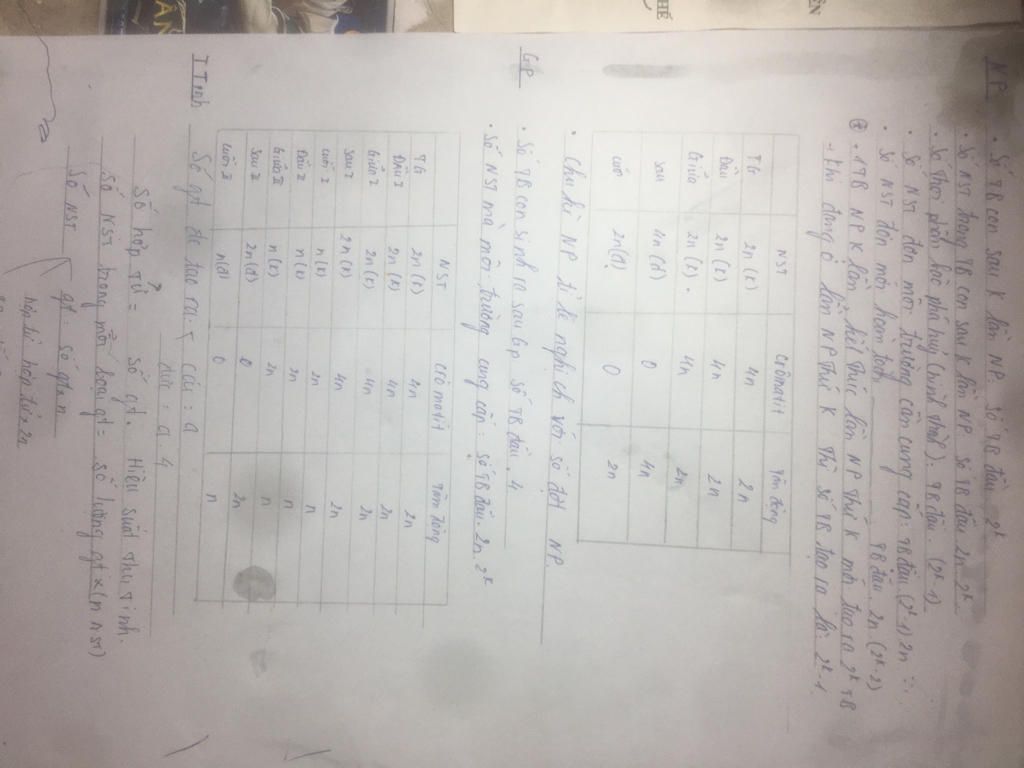 NP
. Số TB con sau K lần NP. Số TB đầu 2^k
. Số NST trong TB con sau K lần NP số TB đầu 2n. 2^k
. Số thoi phân bào phá huỷ (hình thành). TB đầu. (2^k-1)
. Số NST đơn môi trường cần cung cấp: TB đầu (2^k-1) 2n
. Số NST đơn mới hoàn toàn TB đầu 2n (2^k-2)
. 1TB NP K lần, kết thúc lần NP thứ K mới tạo ra 2^k TB
→ Khi đang ở lần NP thứ K thì số TB tạo ra là 2^k-1
NST Crômatit Tâm động
TG 2n (k) 4n 2n
Đầu 2n (k) 4n 2n
Giữa 2n (k). 4n 2n
sau 4n (đ) 0 4n
cuối 2n(đ) 0 2n
. Chu kì NP tỉ lệ nghịch với số đợt NP
GP
. Số TB con sinh ra sau Gp số TB đầu . 4
. Số NST mà môi trường cung cấp: số TB đầu. 2n. 2^k
NST Crômatit Tâm động
TG 2n (k) 4n 2n
Đầu I 2n (k) 4n 2n
Giữa I 2n (k) 4n 2n
sau I 2n (k) 4n 2n
cuối I n (k) 2n n
Đầu II n (k) 2n n
Giữa II n (k) 2n n
sau II 2n (đ) 0 2n
cuối II n(đ) 0 n
T Tinh
Số gt đc tạo ra: cái: a
đực: a 4
Số hợp tử = số gt. Hiệu suất thụ tinh.
Số NST trong mỗi loại gt = số lượng gt x (n NST)
Số NST gt: số gt x n
hợp tử: hợp tử x 2n